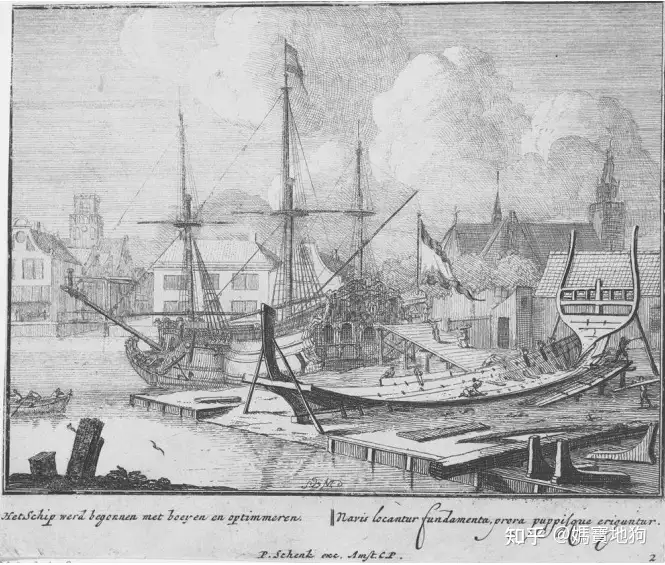 Het Schip werd begonnen met boeyen en optimmeren.
Navis locantur fundamenta, prora puppisque eriguntur.
P. Schenk exc. Amst. C.P.
2
知乎 @嫣寶地狗